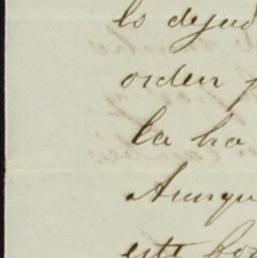 lo dejud
orden p
la ha
Aunqu
este